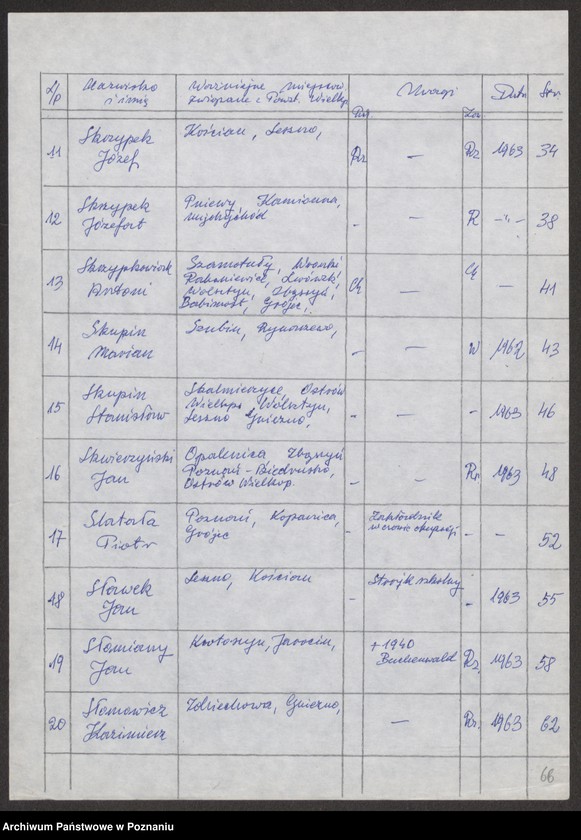 L/p Nazwisko i imię Ważniejsze miejscow. związane z Powst. Wielkp. Uwagi Data Str.
11 Skrzypek Józef Kościan, Leszno, Rz — Rz 1963 34
12 Skrzypek Józefat Pniewy, Kamionna, Międzychód - — R —"— 38
13 Skrzypkowiak Antoni Szamotuły, Wronki Rakoniewice, Lwówek Wolsztyn, Zbąszyń, Babimost, Grójec, Cę — Cę — 41
14 Skupin Marian Szubin, Rynarzewo, - — W 1962 43
15 Skupin Stanisław Skalmierzyce, Ostrów Wielkop. Wolsztyn, Leszno Gniezno, - — - 1963 46
16 Skwierzyński Jan Opalenica, Zbąszyń Poznań - Biedrusko, Ostrów Wielkop. - — Rz 1963 48
17 Slatała Piotr Poznań, Kopanica, Grójec - Zakładnik w czasie okupacji - — 52
18 Sławek Jan Leszno, Kościan - Strajk szkolny - 1963 55
19 Słomiany Jan Krotoszyn, Jarocin, +1940 Buchenwald Rz 1963 58
20 Słomowicz Kazimierz Zdziechowa, Gniezno, — Rz 1963 62
66
Archiwum Państwowe w Poznaniu